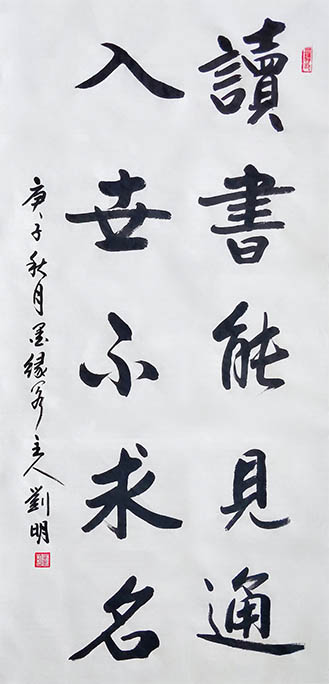 讀書能見通
入世不求名
庚子秋月墨緣齋主人劉明